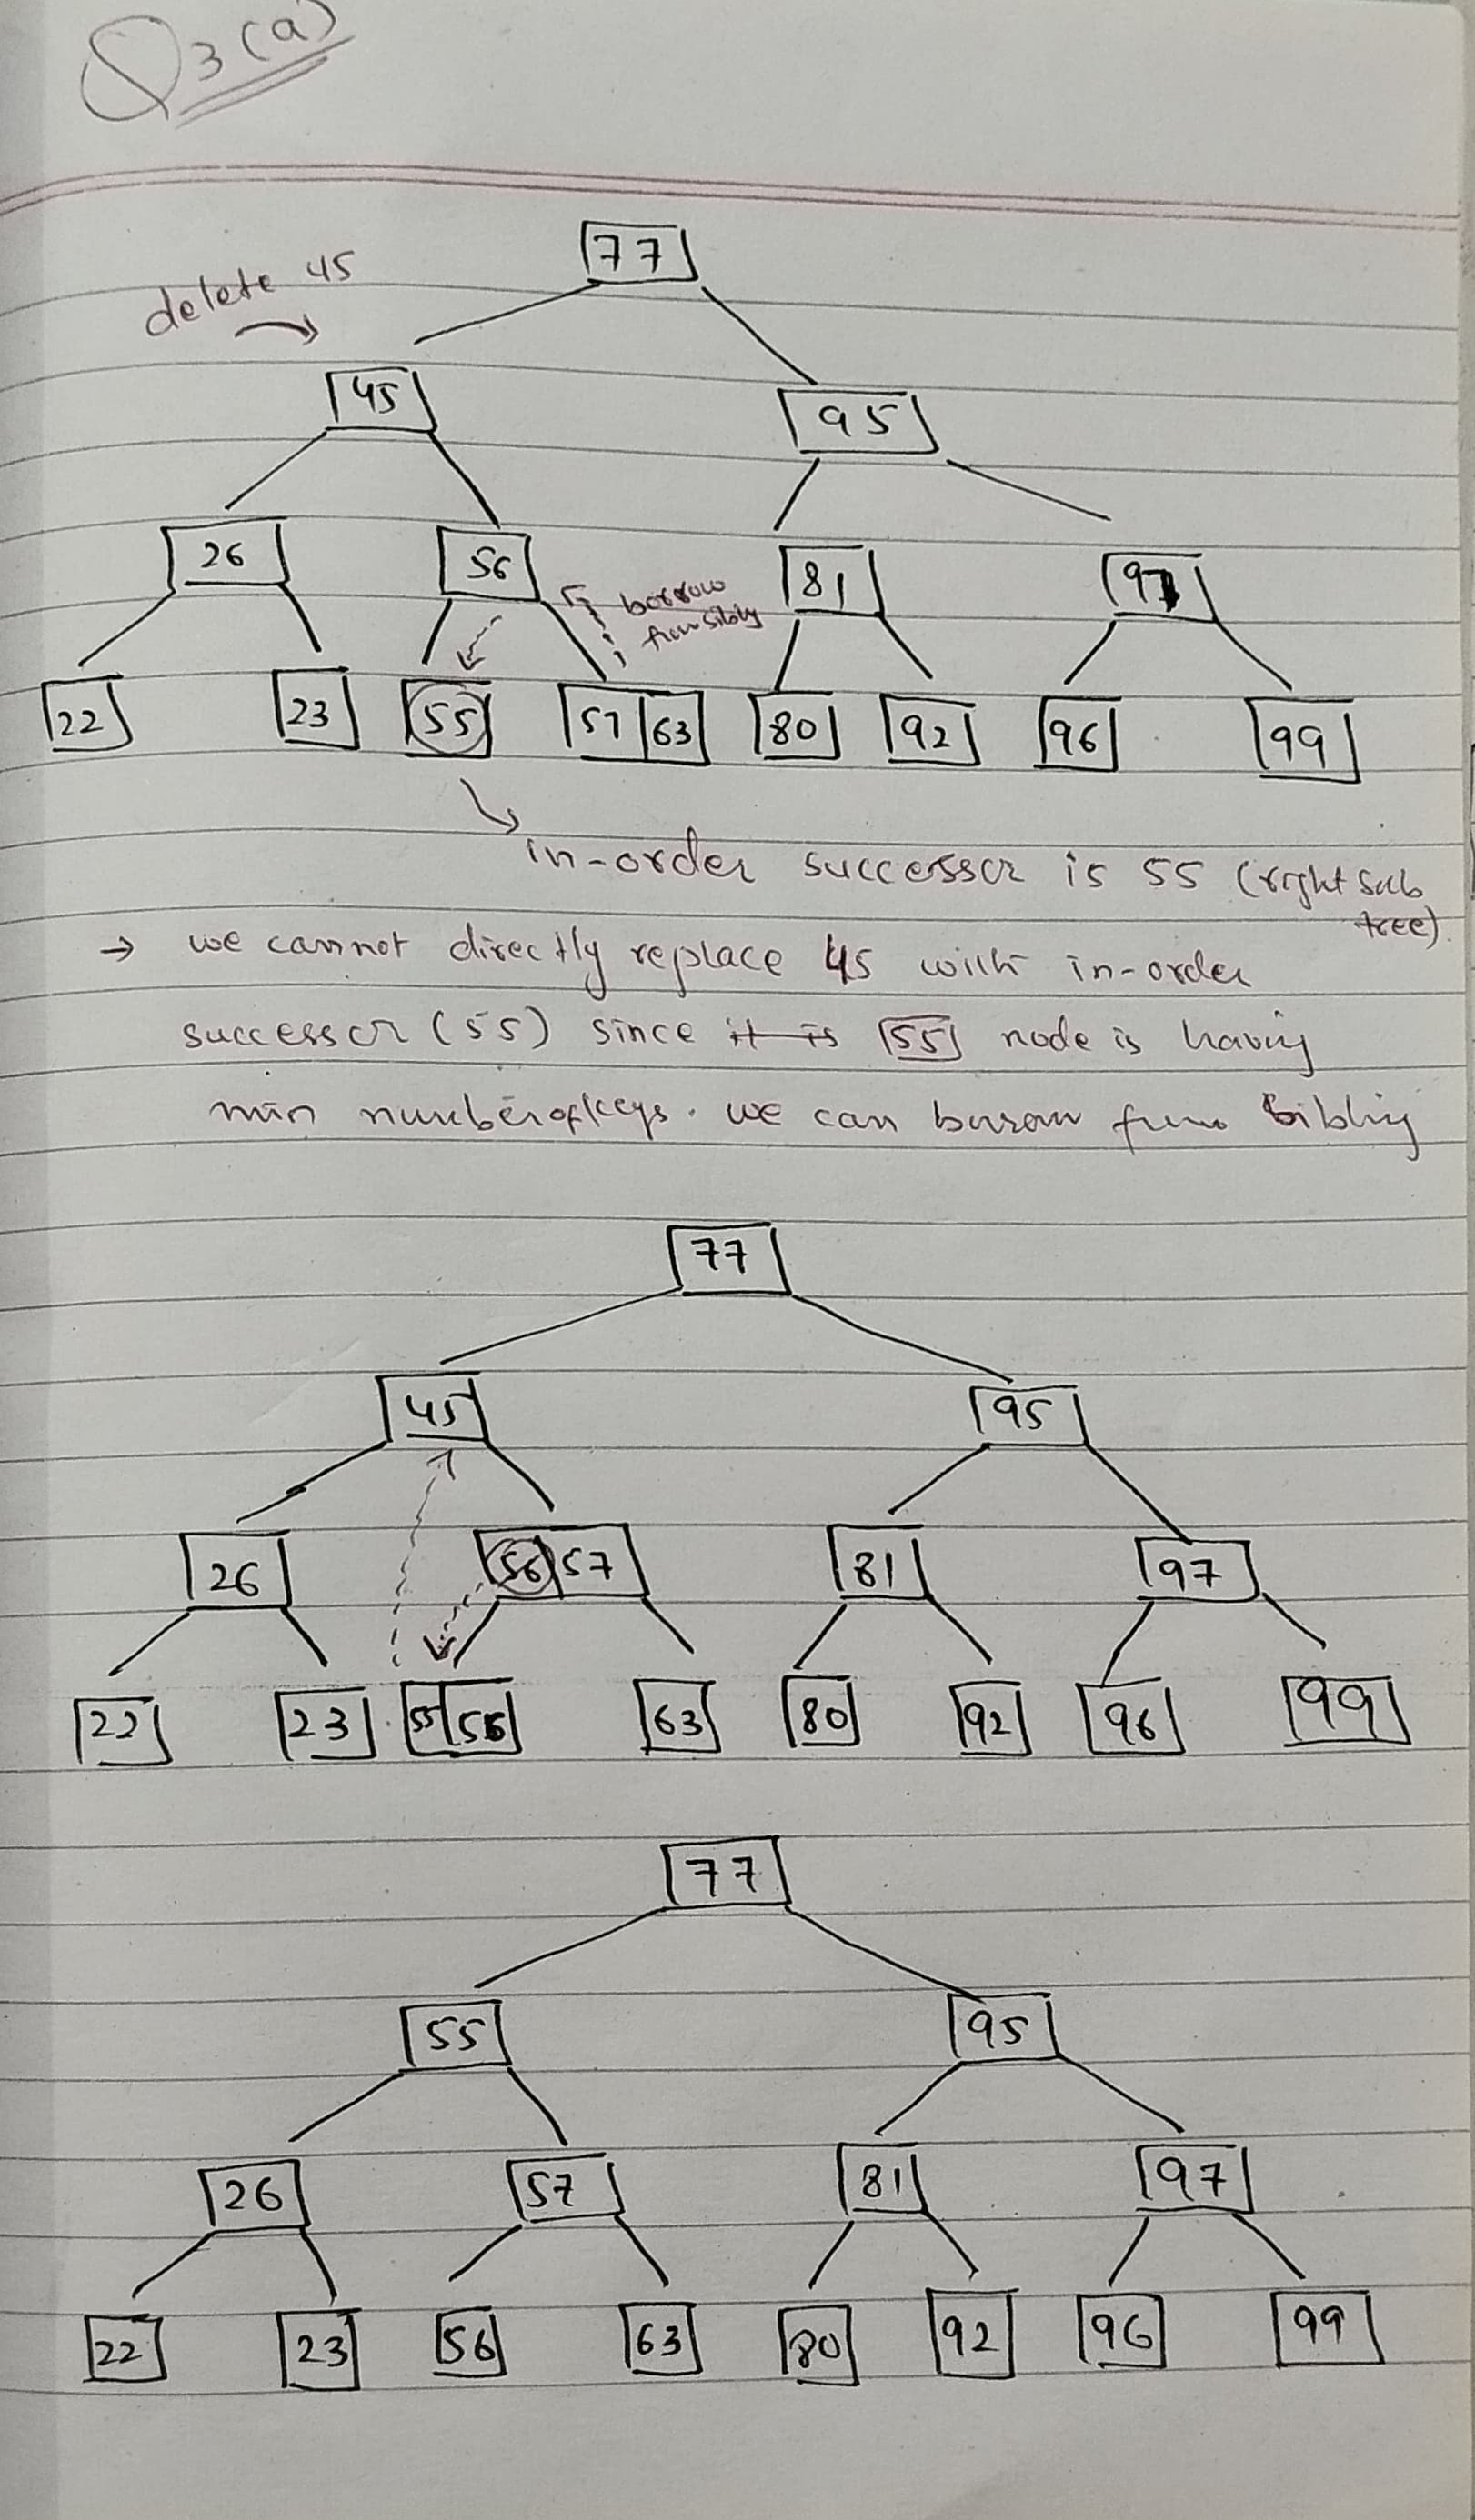 Q3(a)
delete 45
77
45 95
26 56 81 97
borrow
from sibling
22 23 55 57 63 80 92 96 99
in-order successor is 55 (right sub
tree).
→ we cannot directly replace 45 with in-order
successor (55) since it is 55 node is having
min number of keys. we can borrow from sibling
77
45 95
26 56 57 81 97
22 23 55 56 63 80 92 96 99
77
55 95
26 57 81 97
22 23 56 63 80 92 96 99